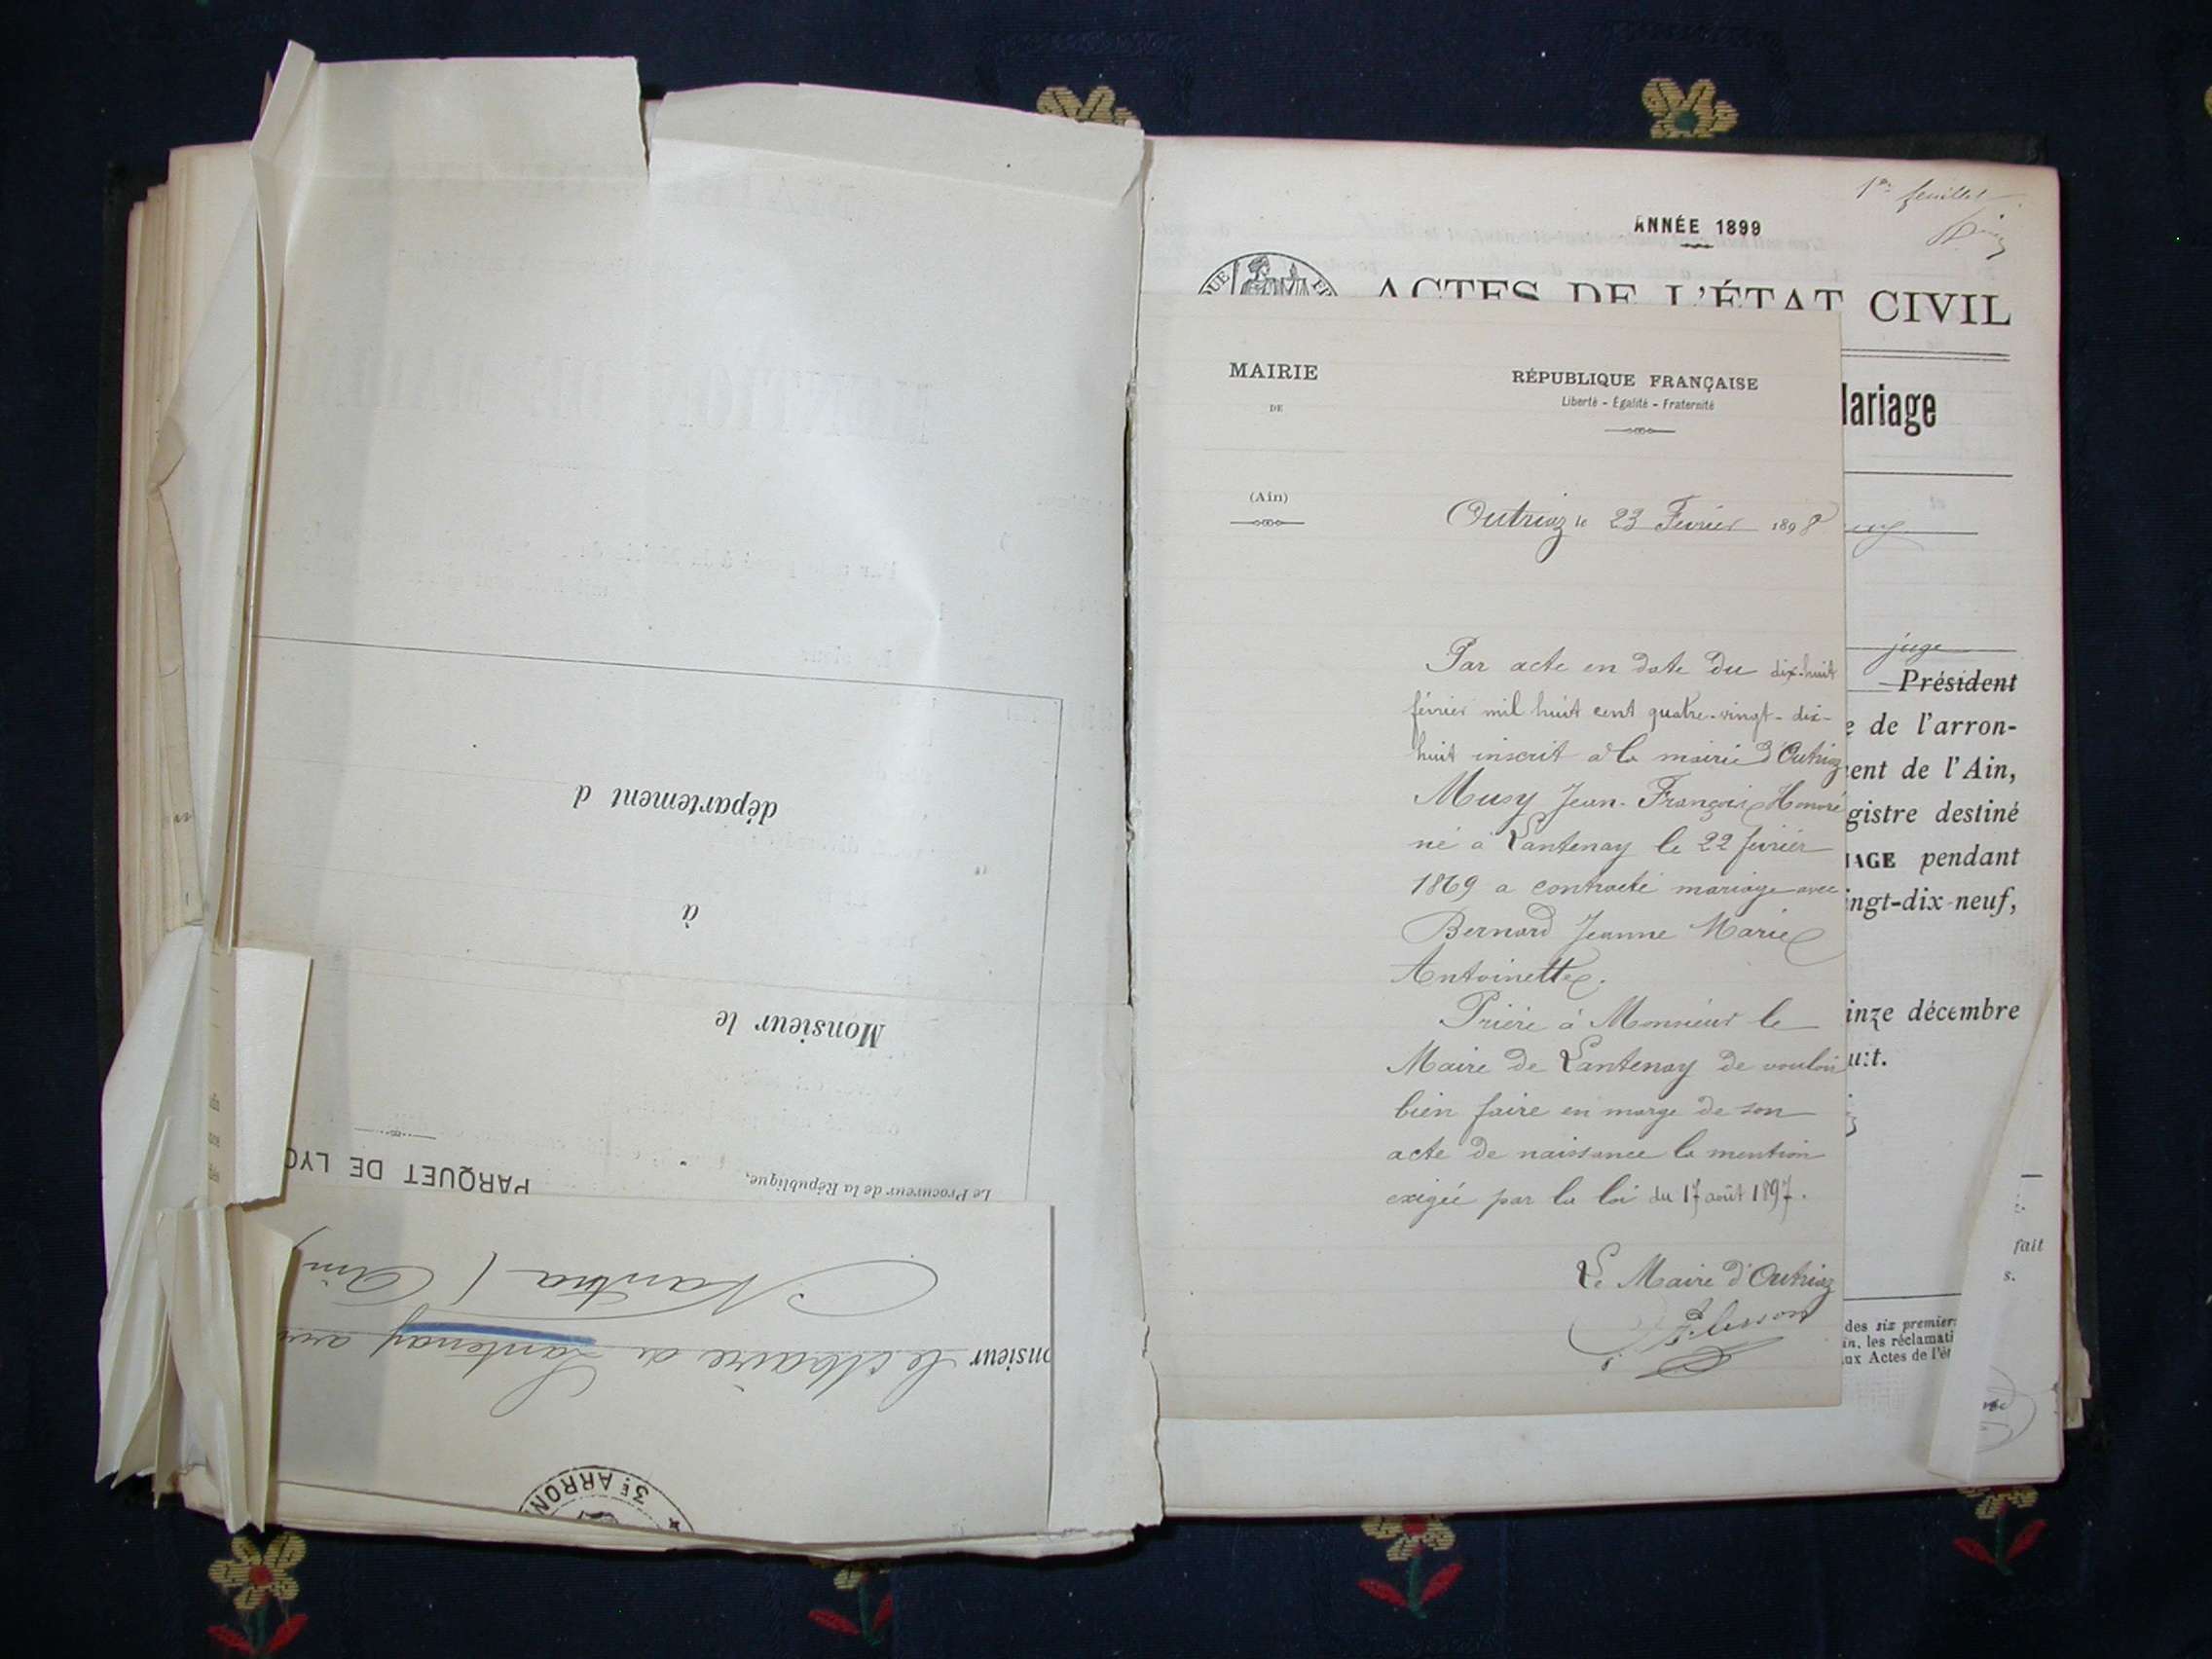 département d
à
Monsieur le
Le Procureur de la République,
PARQUET DE LYO
Nantua (Ain)
onsieur le Maire de Lantenay
3E ARRON
1er feuillet
ANNÉE 1899
ACTES DE L'ÉTAT CIVIL
MAIRIE
DE
(Ain)
RÉPUBLIQUE FRANÇAISE
Liberté - Égalité - Fraternité
Outriaz le 23 Février 1898
Par acte en date du dix-huit
février mil huit cent quatre-vingt-dix-
huit inscrit à la mairie d'Outriaz
Musy Jean-François Honoré
né à Lantenay le 22 février
1869 a contracté mariage avec
Bernard Jeanne Marie
Antoinette.
Prière à Monsieur le
Maire de Lantenay de vouloir
bien faire en marge de son
acte de naissance la mention
exigée par la loi du 17 août 1897.
Le Maire d'Outriaz
ariage
juge
Président
e de l'arron-
ent de l'Ain,
gistre destiné
AGE pendant
ingt-dix-neuf,
inze décembre
fait
s.
des six premier
in, les réclamati
ux Actes de l'ét